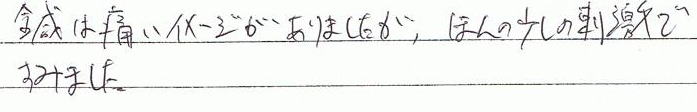 鍼は痛いイメージがありましたが、ほんの少しの刺激で
すみました